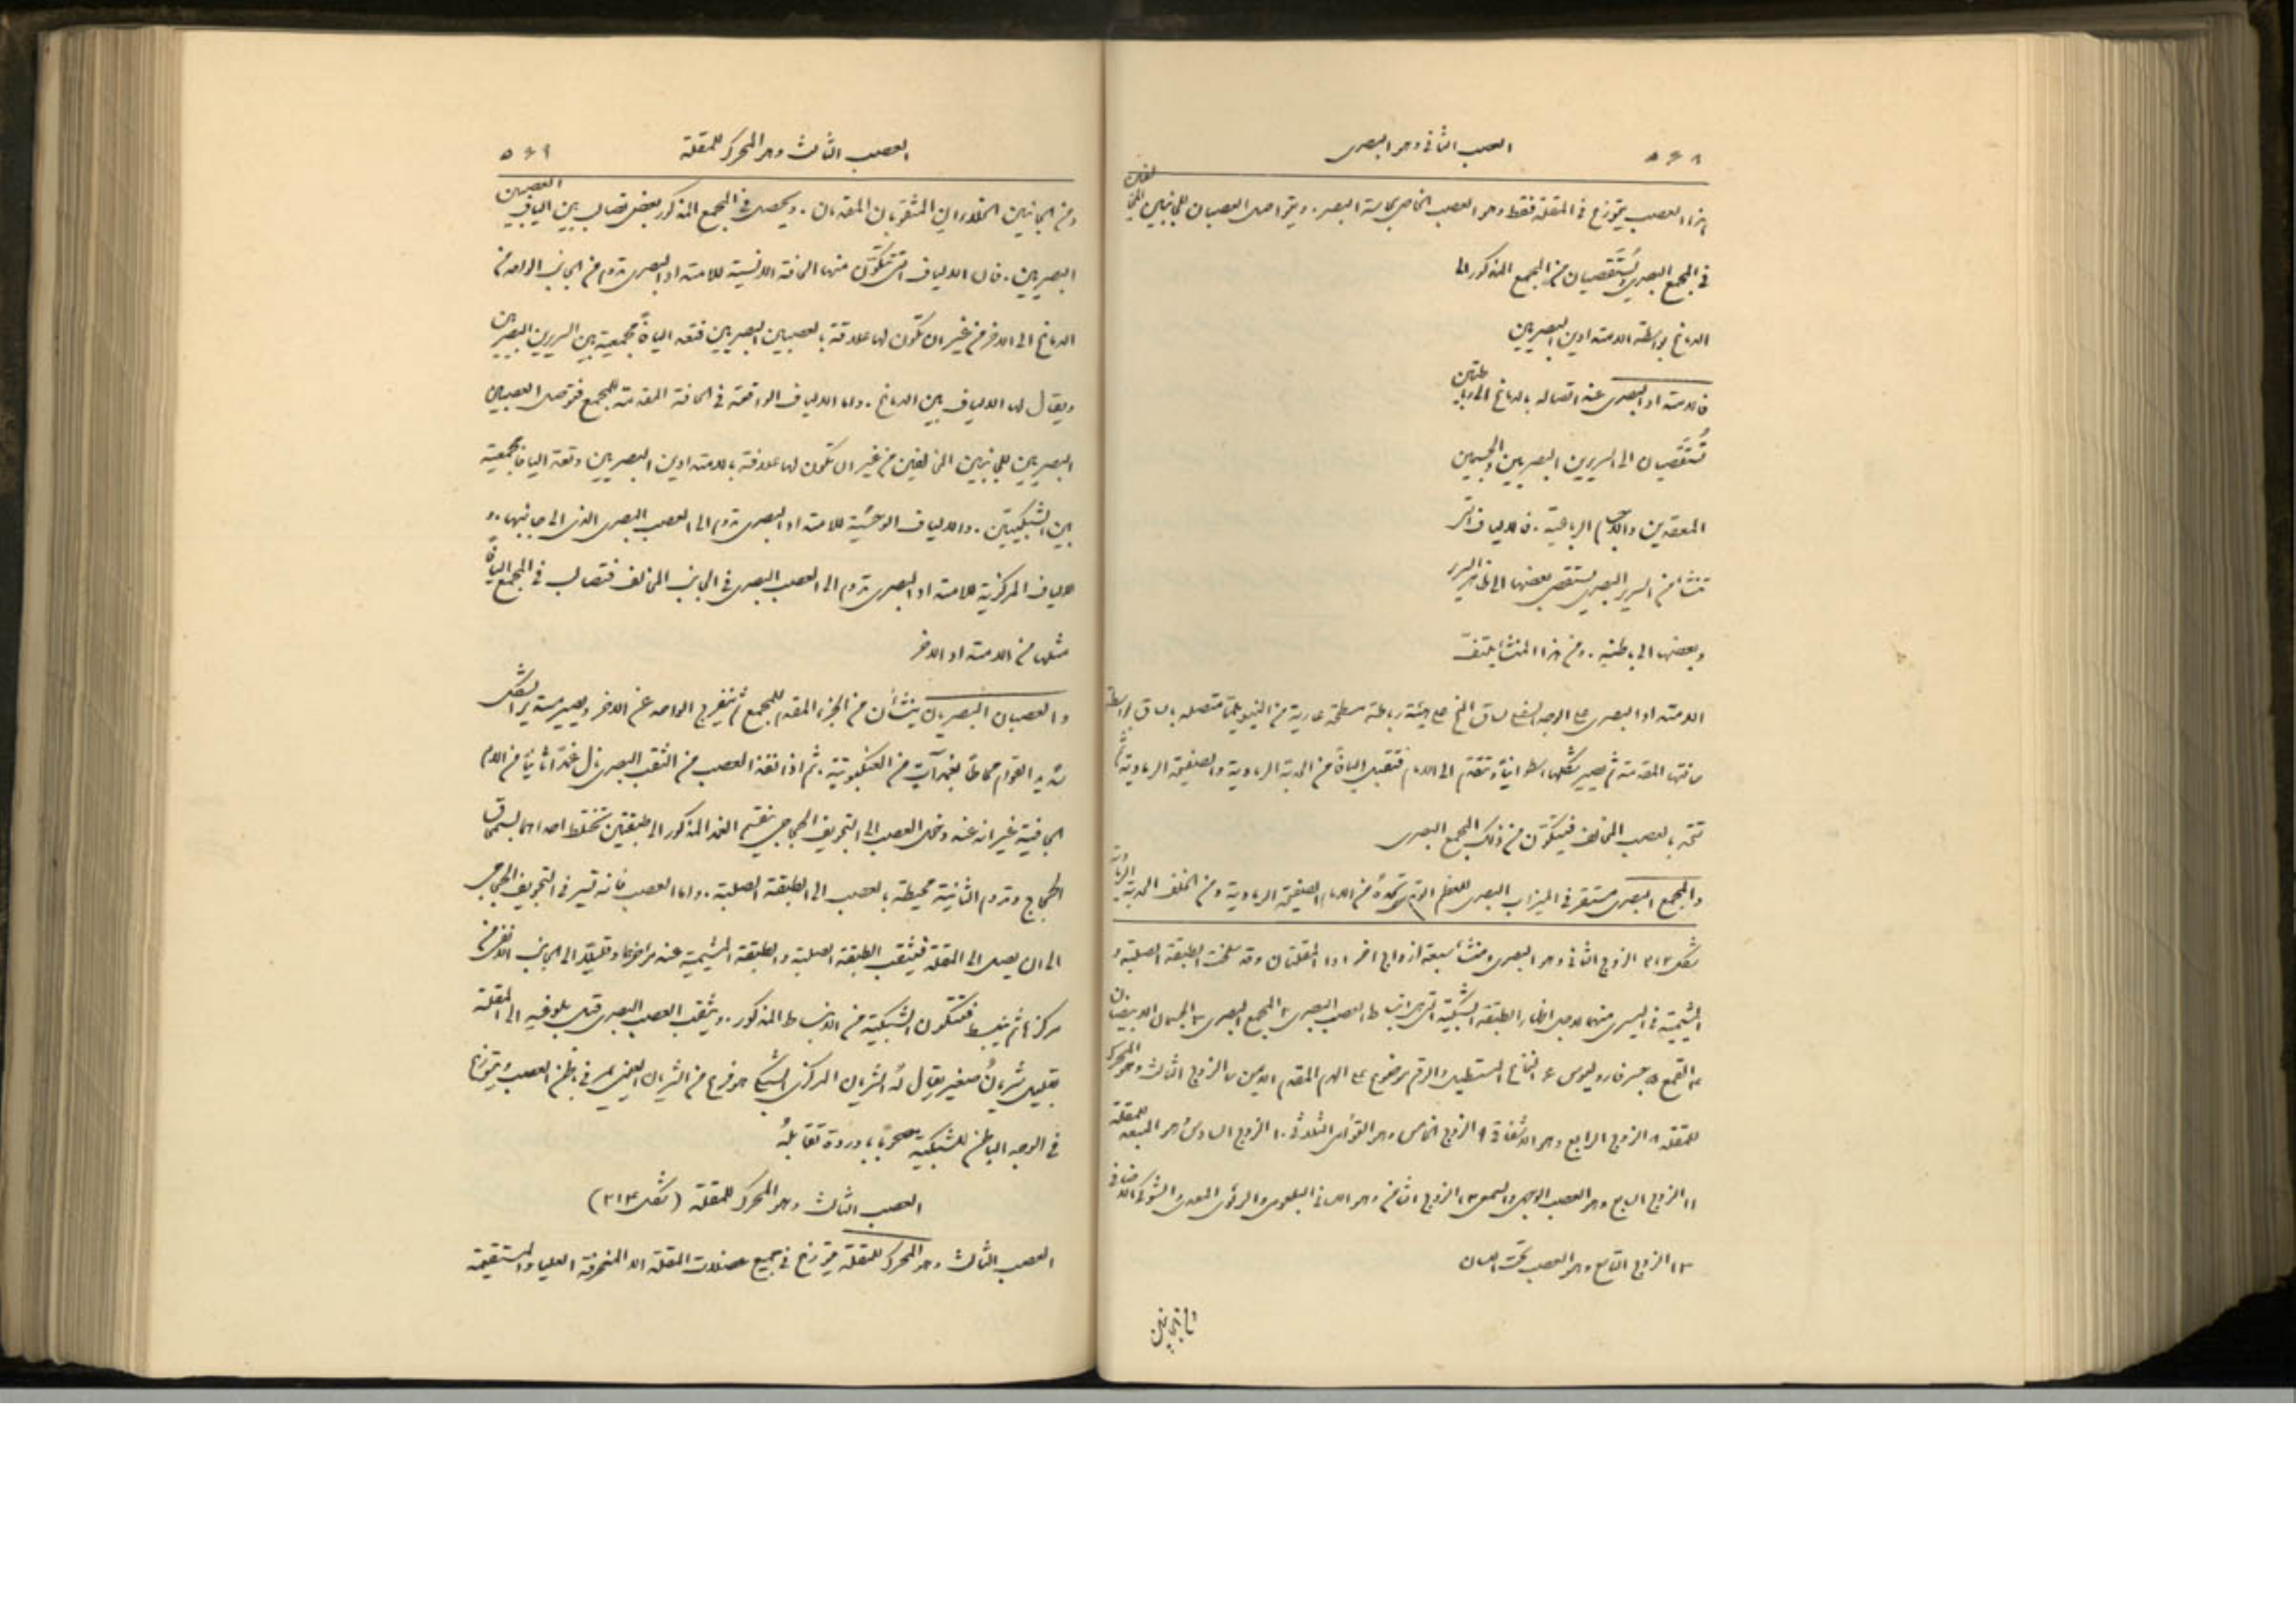 ٥٦٨ العصب الثانى وهو البصرى
هذا العصب يتوزع فى المقلة فقط وهو العصب الخاص بحاسة البصر. ويتواصل العصبان للجانبين المخالفين
فى المجمع البصرى ويستقصيان من المجمع المذكور الى
الدماغ بواسطة الامتدادين البصريين
فالامتداد البصرى عند اتصاله بالدماغ الى رباطتين
تُستقصيان الى السريرين البصريين والجسمين
المعقدين والاجسام الرباعية. فالالياف التى
تنشأ من السرير البصرى يستقصى بعضها الى ظاهر السرير
وبعضها الى باطنه. ومن هذا المنشأ يلتف
الامتداد البصرى على الوجه السفلى لساق المخ على هيئة رباطة مسطحة عارية من النيوريلما متصلة بالساق بواسطة
حافتها المقدمة ثم يصير شكلها اسطوانيا وتتقدم الى الامام فتقبل اليافاً من الحدبة الرمادية والصفيحة الرمادية ثم
تتحد بالعصب المخالف فيتكون من ذلك المجمع البصرى
والمجمع البصرى مستقر فى الميزاب البصرى للعظم الوتدى تحده من الامام الصفيحة الرمادية ومن الخلف الحدبة الرمادية
شكل ٣١٣ الزوج الثانى وهو البصرى ومنشأ سبعة ازواج اخر ١ و١ المقلتان وقد سلخت الطبقة الصلبة و
المشيمية فى اليسرى منهما لاجل اظهار الطبقة الشبكية التى هى انبساط العصب البصرى ٢ المجمع البصرى ٣ الجسمان الابيضان
٤ القمع ٥ جسر فاروليوس ٦ النخاع المستطيل والرقم موضوع على الهرم المقدم الايمن ٧ الزوج الثالث وهو المحرك
للمقلة ٨ الزوج الرابع وهو الاشفاقى ٩ الزوج الخامس وهو التوأمى الثلاثى ١٠ الزوج السادس وهو المبعد للمقلة
١١ الزوج السابع وهو العصب الوجهى والسمعى ١٢ الزوج الثامن وهو اللسانى البلعومى والرئوى المعدى والشوكى الاضافى
١٣ الزوج التاسع وهو العصب تحت اللسان
العصب الثالث وهو المحرك للمقلة ٥٦٩
ومن الجانبين الخلاءان المثقوبان المقدمان. ويحصل فى المجمع المذكور بعض تصالب بين الياف العصبين
البصريين. فان الالياف التى تتكون منها الحافة الانسية للامتداد البصرى تدوم من الجانب الواحد من
الدماغ الى الاخر من غير ان تكون لها علاقة بالعصبين البصريين فتعد اليافاً مجمعية بين السريرين البصريين
ويقال لها الالياف بين الدماغ. واما الالياف الواقعة فى الحافة المقدمة للمجمع فتوصل العصبين
البصريين للجانبين المخالفين من غير ان تكون لها علاقة بالامتدادين البصريين وتعد اليافا مجمعية
بين الشبكيتين. والالياف الوحشية للامتداد البصرى تدوم الى العصب البصرى الذى الى جانبها. و
الالياف المركزية للامتداد البصرى تدوم الى العصب البصرى فى الجانب المخالف فتصالب فى المجمع اليافاً
مثلها من الامتداد الاخر
والعصبان البصريان ينشأان من الجزء المقدم للمجمع ثم ينفرج الواحد عن الاخر ويصير مستدير الشكل
شديد القوام محاطاً بغمد آتٍ من العنكبوتية. ثم اذا نفذ العصب من الثقب البصرى نال غمداً ثانياً من الام
الجافية غير انه عند دخول العصب الى التجويف الحجاجى ينقسم الغمد المذكور الى طبقتين تختلط احداهما بسمحاق
الحجاج وتدوم الثانية محيطة بالعصب الى الطبقة الصلبة. واما العصب فانه تسير فى التجويف الحجاجى
الى ان يصل الى المقلة فيثقب الطبقة الصلبة والطبقة المشيمية عند مؤخرهما وقليلاً الى الجانب الانفى من
مركزها ثم ينبسط فتتكون الشبكية من الانبساط المذكور. ويثقب العصب البصرى قبل بلوغه الى المقلة
بقليل شريانٌ صغير يقال له الشريان المركزى للشبكية هو فرع من الشريان العينى يمر فى باطن العصب ويتوزع
فى الوجه الباطن للشبكية مصحوباً باوردة تقابله
العصب الثالث وهو المحرك للمقلة (شكل ٣١٤)
العصب الثالث وهو المحرك للمقلة يتوزع فى جميع عضلات المقلة الا المنحرفة العليا والمستقيمة